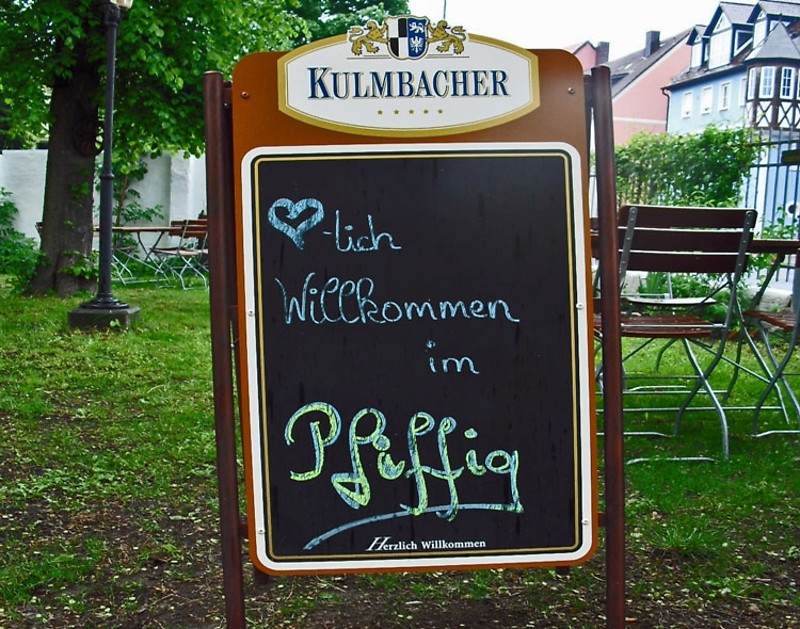 KULMBACHER
♥-lich
Willkommen
im
Pfiffig
Herzlich Willkommen